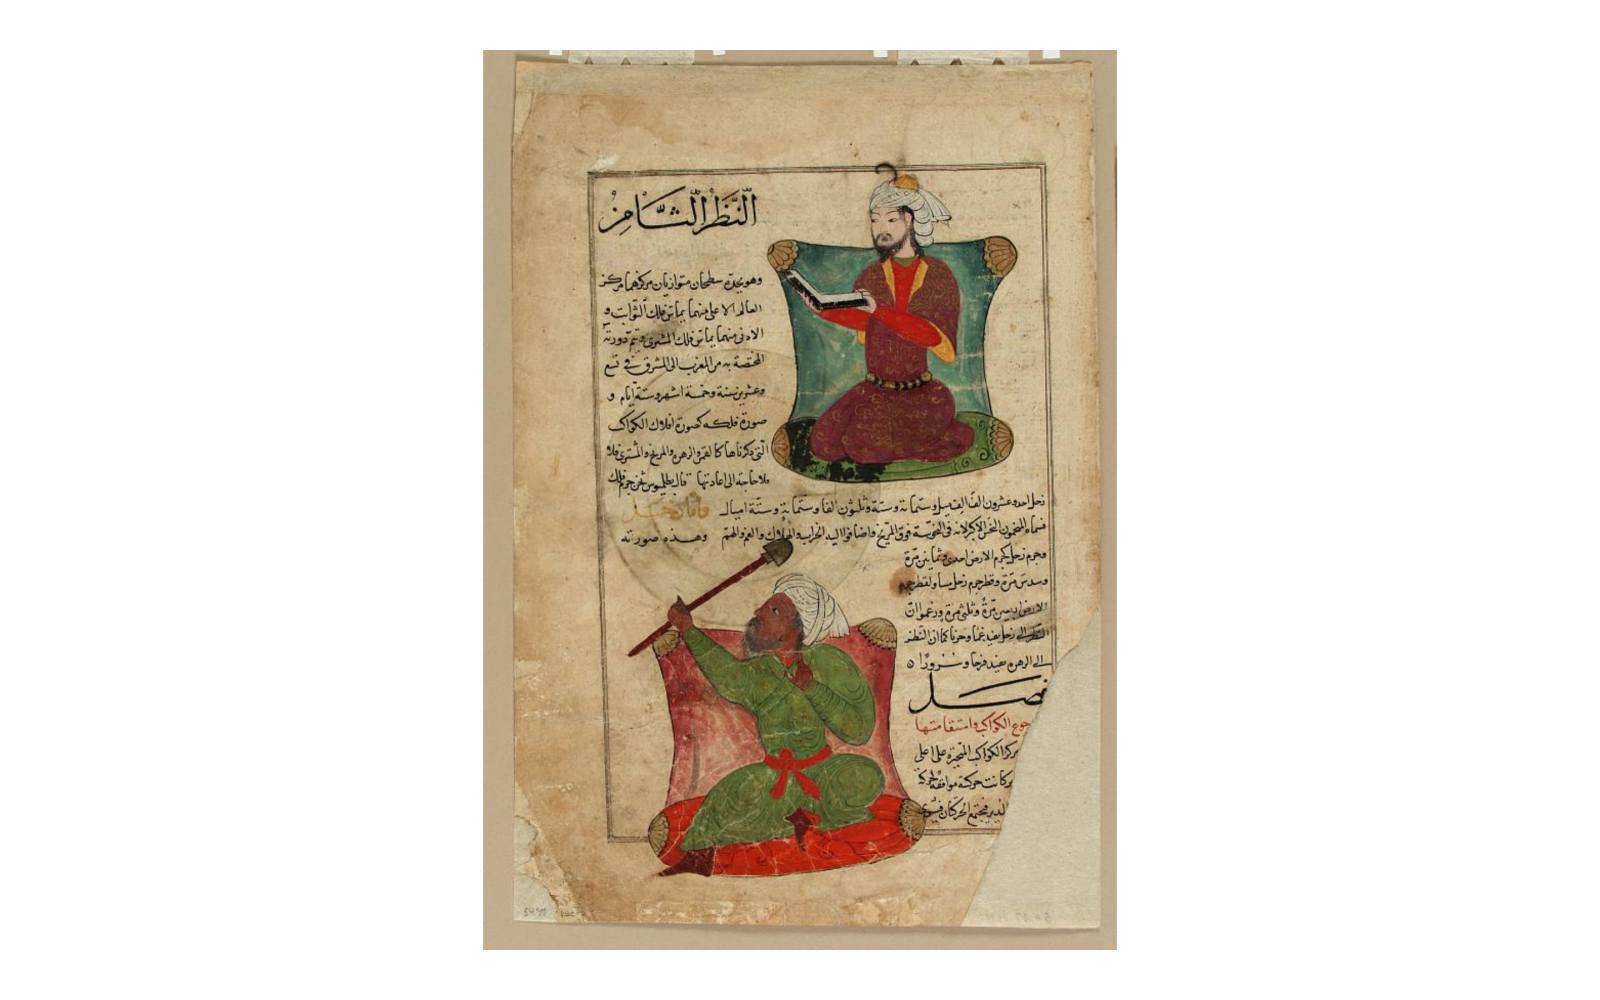 النظر الثامن
وهو يحده سطحان متوازيان مركزهما مركز
العالم الاعلى منهما يماس فلك الثوابت و
الادنى منهما يماس فلك المشترى ويتم دورته
المختصة به من المغرب الى المشرق فى تسع
وعشرين سنة وخمسة اشهر وستة ايام و
صورة فلكه كصورة افلاك الكواكب
التى ذكرناها كالقمر والزهرة والمريخ والمشترى فلا
فلا حاجة الى اعادتها قال بطليموس ثخن جرم فلك
زحل احد وعشرون الف الف ميل وستمائة وستة وثلثون الفا وستمائة وستة اميال
فسماه المنجمون النحس الاكبر لانه فى النحوسة فوق المريخ واضافوا اليه الخراب والهلاك والغم والهم وهذه صورته
وجرم زحل كجرم الارض احدى وثمانين مرة
وسدس مرة وقطر جرم زحل مساو لقطر جرم
الارض مرة وثلثى مرة وزعموا ان
النظر الى زحل يفيد غما وحزنا كما ان النظر
الى الزهرة يفيد فرحا وسرورا ٥
فصل
الكواكب واستقامتها
مركز الكواكب المتحيرة على اعلى
كانت حركته موافقة لحركة
فيجتمع الحركتان